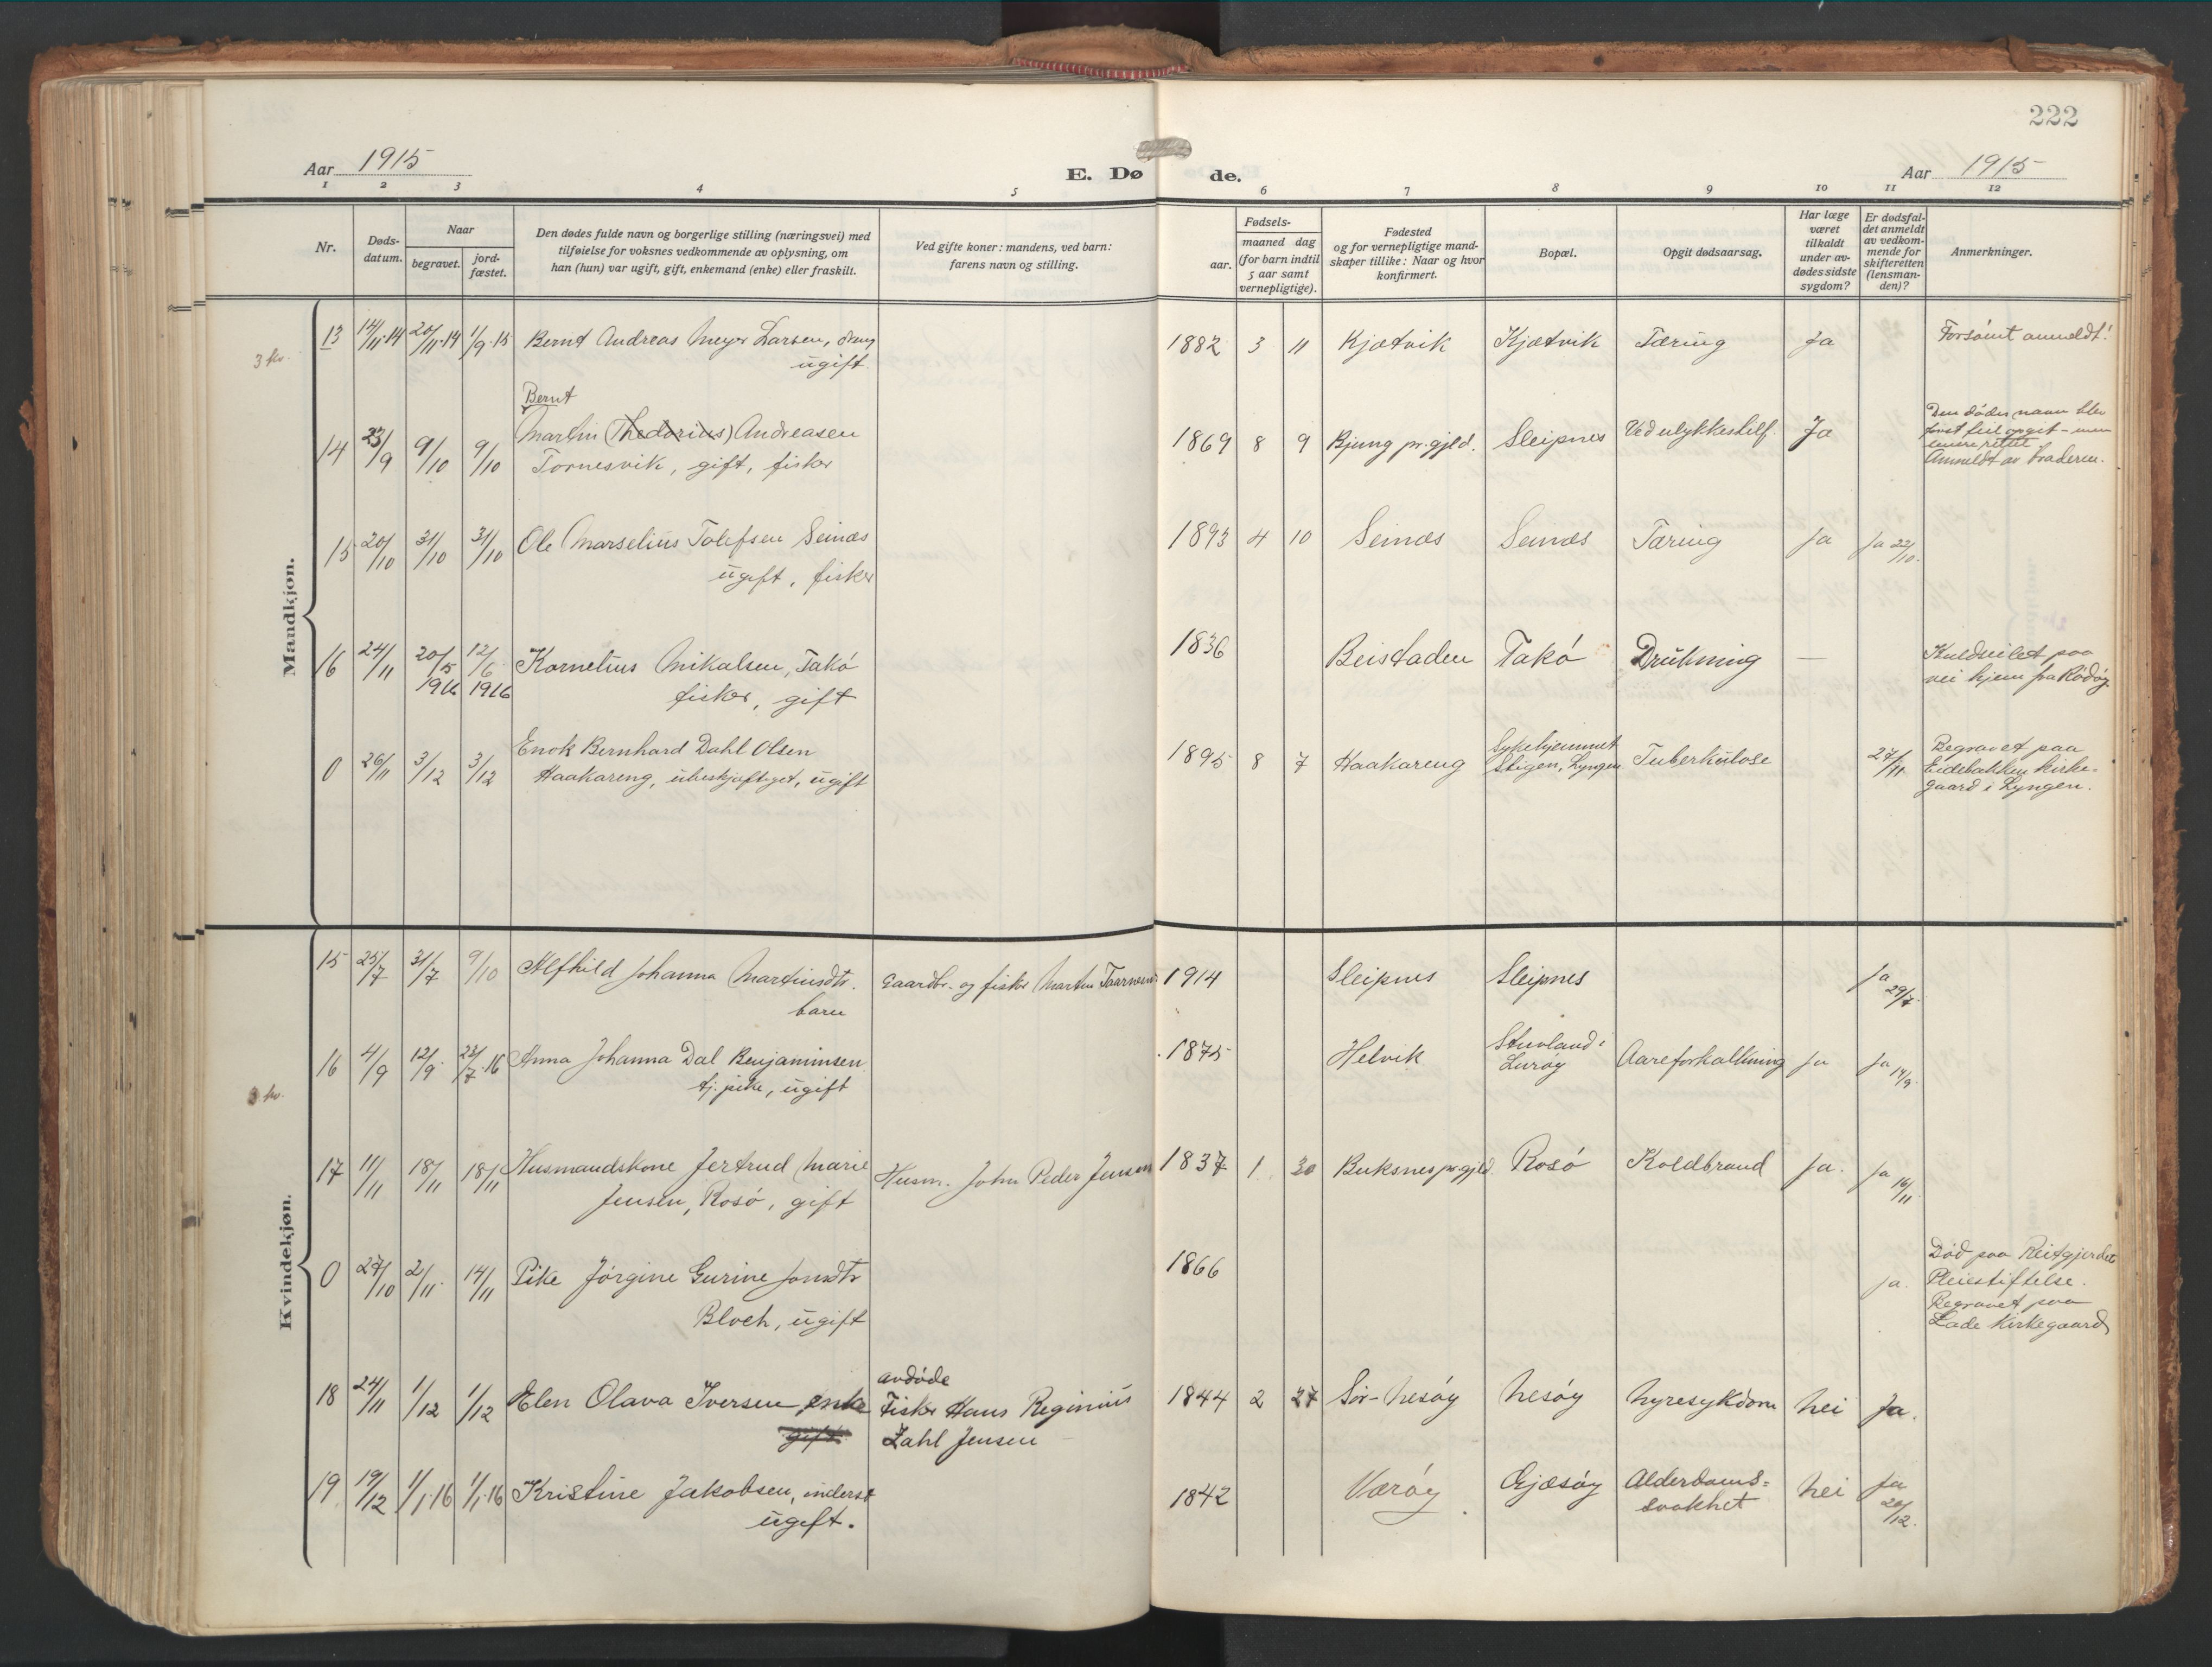 222
Aar 1915
E. Dø de.
Aar 1915
1 2 3 4 5 6 7 8 9 10 11 12
Nr.
Døds-
datum.
Naar
begravet.
jord-
fæstet.
Den dødes fulde navn og borgerlige stilling (næringsvei) med
tilføielse for voksnes vedkommende av oplysning, om
han (hun) var ugift, gift, enkemand (enke) eller fraskilt.
Ved gifte koner: mandens, ved barn:
farens navn og stilling.
Fødsels-
aar.
maaned dag
(for barn indtil
5 aar samt
vernepligtige).
Fødested
og for vernepligtige mand-
skaper tillike: Naar og hvor
konfirmert.
Bopæl.
Opgit dødsaarsag.
Har læge
været
tilkaldt
under av-
dødes sidste
sygdom?
Er dødsfal-
det anmeldt
av vedkom-
mende for
skifteretten
(lensman-
den)?
Anmerkninger.
Mandkjøn.
3 kv.
13 14/11·14 20/11·14 1/9·15 Bernt Andreas Meyer Larsen, dreng
ugift
1882 3 11 Kjøtvik Kjøtvik Tæring Ja Forsømt anmeldt!
Bernt
14 23/9 9/10 9/10 Martin (Thedorius) Andreasen
Tornesvik, gift, fisker
1869 8 9 Bjung pr.gjeld. Sleipnes Ved ulykkestilf. Ja
Den dødes navn blev
først feil opgit - men
senere rettet
Anmeldt av broderen.
15 20/10 31/10 31/10 Ole Marselius Tolefsen Seinæs
ugift, fisker
1893 4 10 Seinæs Seinæs Tæring Ja Ja 22/10.
16 24/11 20/5 1916 12/6 1916 Kornelius Mikalsen, Takø
fisker, gift
1836 Beistaden Takø Drukning —
Kuldseilet paa
vei hjem fra Rødøy.
0 26/11 3/12 3/12 Enok Bernhard Dahl Olsen
Haakareng, ubeskjæftiget, ugift
1895 8 7 Haakareng Sykehjemmet
Stigen, Lyngen Tuberkulose 27/11
Begravet paa
Eidebakken kirke-
gaard i Lyngen.
Kvindekjøn.
3 kv.
15 25/7 31/7 9/10 Alfhild Johanna Martinsdtr.
barn
Gaardbr. og fisker Martin Taarnesvik
1914 Sleipnes Sleipnes Ja 29/7.
16 4/9 12/9 23/7·16 Anna Johanna Dal Benjaminsen
tj. pike, ugift
1875 Helvik Stuvland i
Lurøy Aareforkalkning Ja Ja 14/9.
17 11/11 18/11 18/11 Husmandskone Jertrud Marie
Jensen, Rosø, gift
Husm. John Peder Jensen
1837 1 30 Buksnes pr.gjeld. Rosø Koldbrand Ja. Ja 16/11
0 27/10 2/11 14/11 Pike Jørgine Gurine Jonsdtr
Bloch, ugift
1866 Ja.
Død paa Reitgjerdet
Pleiestiftelse.
Begravet paa
Lade Kirkegaard
18 24/11 1/12 1/12 Elen Olava Iversen enke
gift
avdøde
Fisker Hans Reginius
Zahl Jensen
1844 2 27 Sør-Nesøy Nesøy Nyresykdom Nei Ja.
19 19/12 1/1·16 1/1·16 Kristine Jakobsen, inderst
ugift.
1842 Værøy Gjæsøy Alderdoms-
svakhet Nei Ja
20/12.